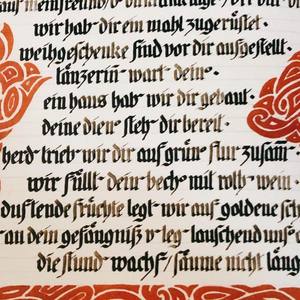 wir hab dir ein mahl zugerüstet.
weihgeschenke sind vor dir aufgestellt.
tänzerin wart dein.
ein haus hab wir dir gebaut.
deine dien steh dir bereit.
herd trieb wir dir auf grün flur zusam
wir füllt dein bech mit roth wein.
duftende früchte legt wir auf goldene sch
an dein gefängniß v leg lauschend uns
die stund wachs / säume nicht läng